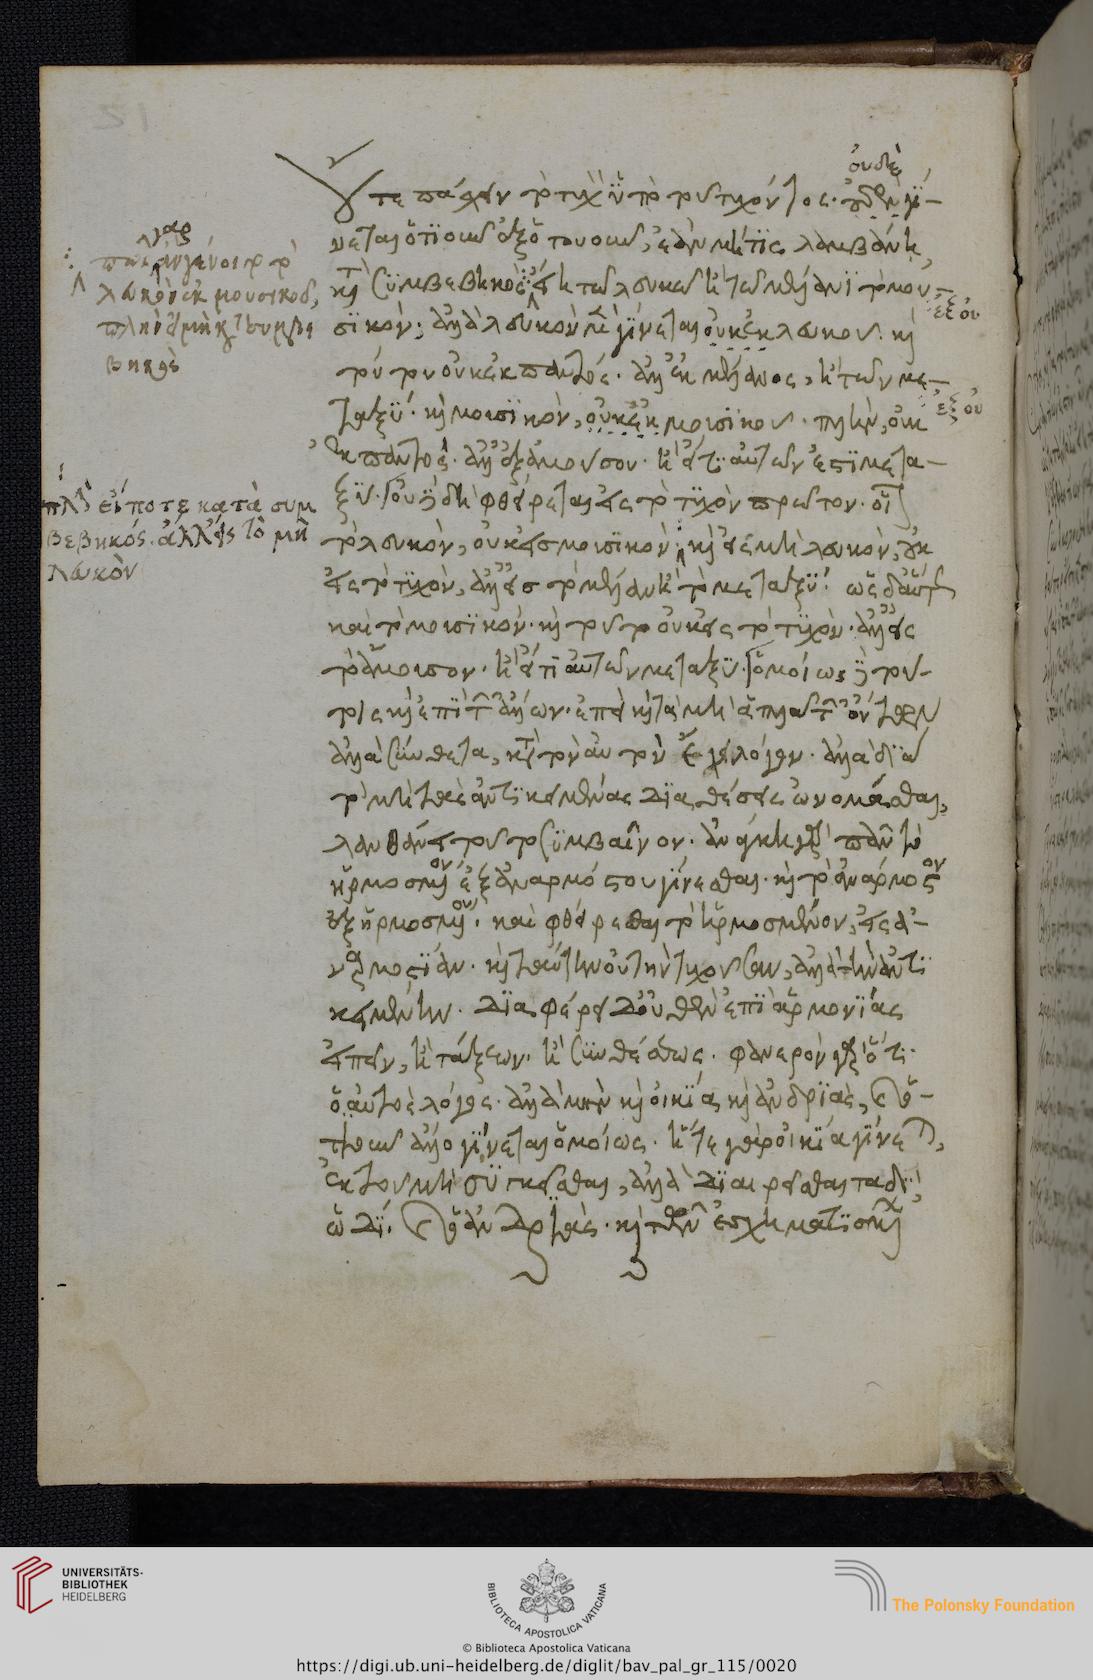 οὐδὲ
οὔτε πάσχειν τὸ τυχὸν ὑπὸ τοῦ τυχόντος· οὐδὲν γί-
νεται ὁτιοῦν ἐξ ὁτουοῦν, ἐὰν μή τις λαμβάνῃ,
κατὰ συμβεβηκός· εἴη τῶ λευκῶ ἢ τῶ μέλανι τὸ μου-
σικόν; ἀλλὰ λευκὸν μὲν γίνεται οὐκ ἐκ λευκοῦ· καὶ
τούτου οὐκ ἐκ παντός· ἀλλ' ἐκ μέλανος, ἢ τῶν με-
ταξύ· καὶ μουσικόν, οὐκ ἐκ μουσικοῦ· πλὴν, οὐκ
ἐκ παντός· ἀλλ' ἐξ ἀμούσου· ἢ εἴ τι αὐτῶν ἐστὶ μετα-
ξύ· οὐδὲ δὴ φθείρεται εἰς τὸ τυχὸν πρῶτον· οἷον
τὸ λευκὸν, οὐκ εἰς μουσικὸν· καὶ εἰς μὴ λευκὸν, οὐκ
εἰς τὸ τυχὸν, ἀλλ' εἰς τὸ μέλαν ἢ τὸ μεταξύ· ὡσδαύτως
καὶ τὸ μουσικόν· καὶ τοῦτο οὐκ εἰς τὸ τυχὸν· ἀλλ' εἰς
τὸ ἄμουσον· ἢ εἴ τι αὐτῶν μεταξύ· ὁμοίως δὲ τοῦ-
το καὶ ἐπὶ τῶν ἄλλων· ἐπεὶ καὶ τὰ μὴ ἁπλᾶ τῶν ὄντων
ἀλλὰ σύνθετα, κατὰ τὸν αὐτὸν ἔχει λόγον· ἀλλὰ διὰ
τὸ μὴ τὰς ἀντικειμένας διαθέσεις ὠνομάσθαι,
λανθάνει τοῦτο συμβαῖνον· ἀνάγκη γὰρ πᾶν τὸ
ἡρμοσμένον ἐξ ἀναρμόστου γίνεσθαι· καὶ τὸ ἀνάρμοστον
ἐξ ἡρμοσμένου· καὶ φθείρεσθαι τὸ ἡρμοσμένον, εἰς ἀ-
ναρμοστίαν· καὶ ταύτην οὐ τὴν τυχοῦσαν, ἀλλὰ τὴν ἀντι
κειμένην· διαφέρει δ' οὐθὲν ἐπὶ ἁρμονίας
εἰπεῖν, ἢ τάξεως, ἢ συνθέσεως· φανερὸν γὰρ ὅτι
ὁ αὐτὸς λόγος· ἀλλὰ μὴν καὶ οἰκία καὶ ἀνδριὰς, καὶ ὁ-
τιοῦν ἄλλο γίνεται ὁμοίως· ἥ τε γὰρ οἰκία γίνεται,
ἐκ τοῦ μὴ συγκεῖσθαι, ἀλλὰ διαιρεῖσθαι ταδὶ
ὡδί· καὶ ὁ ἀνδριὰς· καὶ τῶν ἐσχηματισμένων
πῶς γὰρ ἂν γένοιτο τὸ
λευκὸν ἐκ μουσικοῦ,
πλὴν εἰ μὴ κατὰ συμβε
βηκὸς
ἐξ οὐ
ἐξ οὐ
πλὴν εἴ ποτε κατὰ συμ
βεβηκός. ἀλλ' εἰς τὸ μὴ
λευκὸν
UNIVERSITÄTS-
BIBLIOTHEK
HEIDELBERG
BIBLIOTECA APOSTOLICA VATICANA
The Polonsky Foundation
© Biblioteca Apostolica Vaticana
https://digi.ub.uni-heidelberg.de/diglit/bav_pal_gr_115/0020